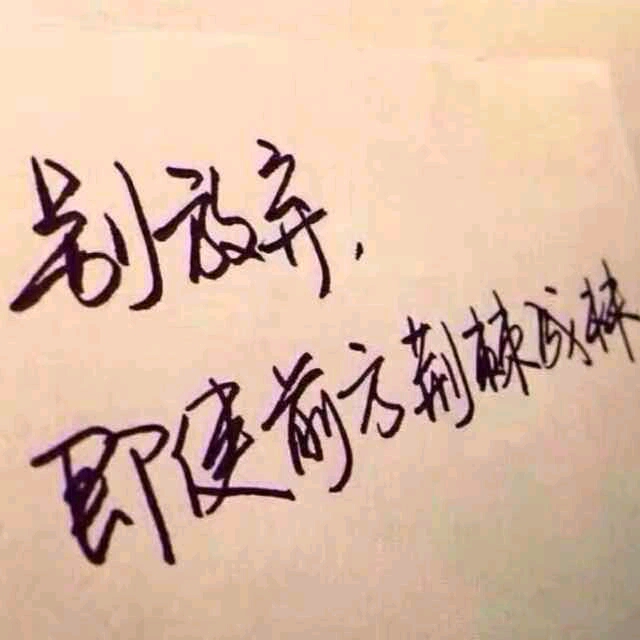 别放弃，
即使前方荆棘成林